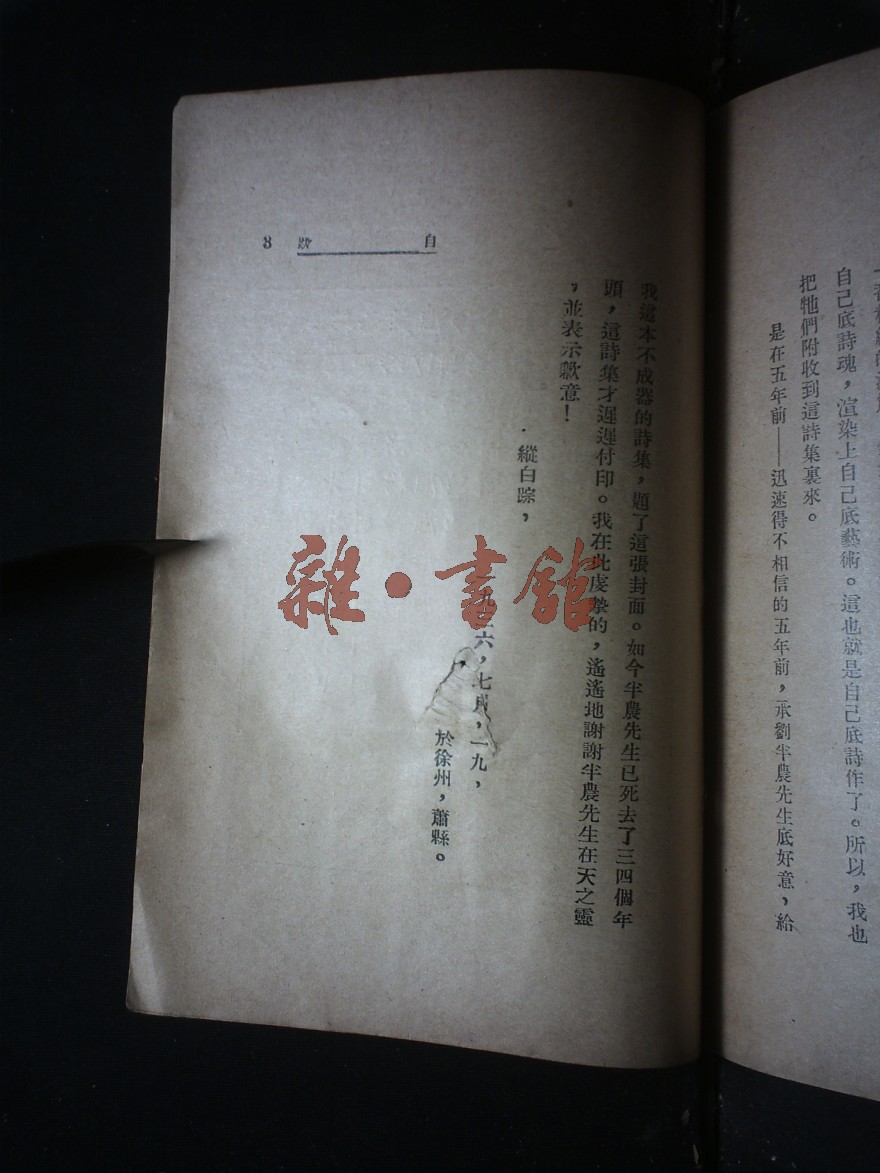 自己底詩魂，渲染上自己底藝術。這也就是自己底詩作了。所以，我也
把牠們附收到這詩集裏來。
是在五年前——迅速得不相信的五年前，承劉半農先生底好意，給
自敘 3
我這本不成器的詩集，題了這張封面。如今半農先生已死去了三四個年
頭，這詩集才遲遲付印。我在此虔摯的，遙遙地謝謝半農先生在天之靈
，並表示歉意！
縱白踪，
六，七月，一九，
於徐州，蕭縣。
雜·書館